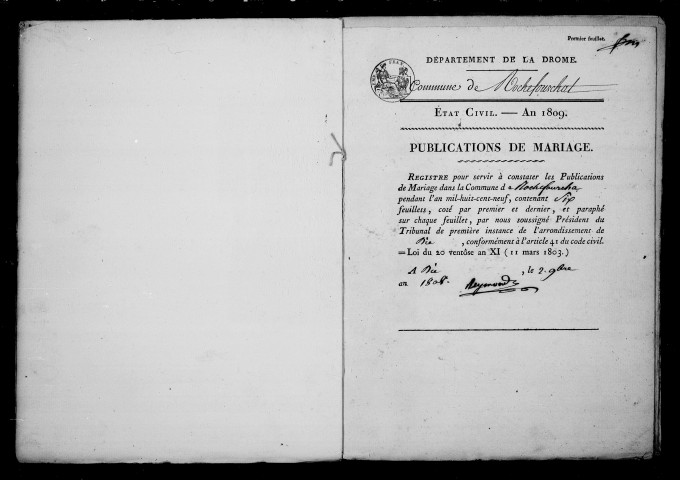 Premier feuillet.
DÉPARTEMENT DE LA DROME.
Commune de Rochefourchat
ÉTAT CIVIL. — AN 1809.
PUBLICATIONS DE MARIAGE.
REGISTRE pour servir à constater les Publications
de Mariage dans la Commune de Rochefourcha
pendant l'an mil-huit-cent-neuf, contenant Six
feuillets, coté par premier et dernier, et paraphé
sur chaque feuillet, par nous soussigné Président du
Tribunal de première instance de l'arrondissement de
Die , conformément à l'article 41 du code civil.
= Loi du 20 ventôse an XI ( 11 mars 1803. )
A Die , le 2. 9bre
an 1808.
Reymond